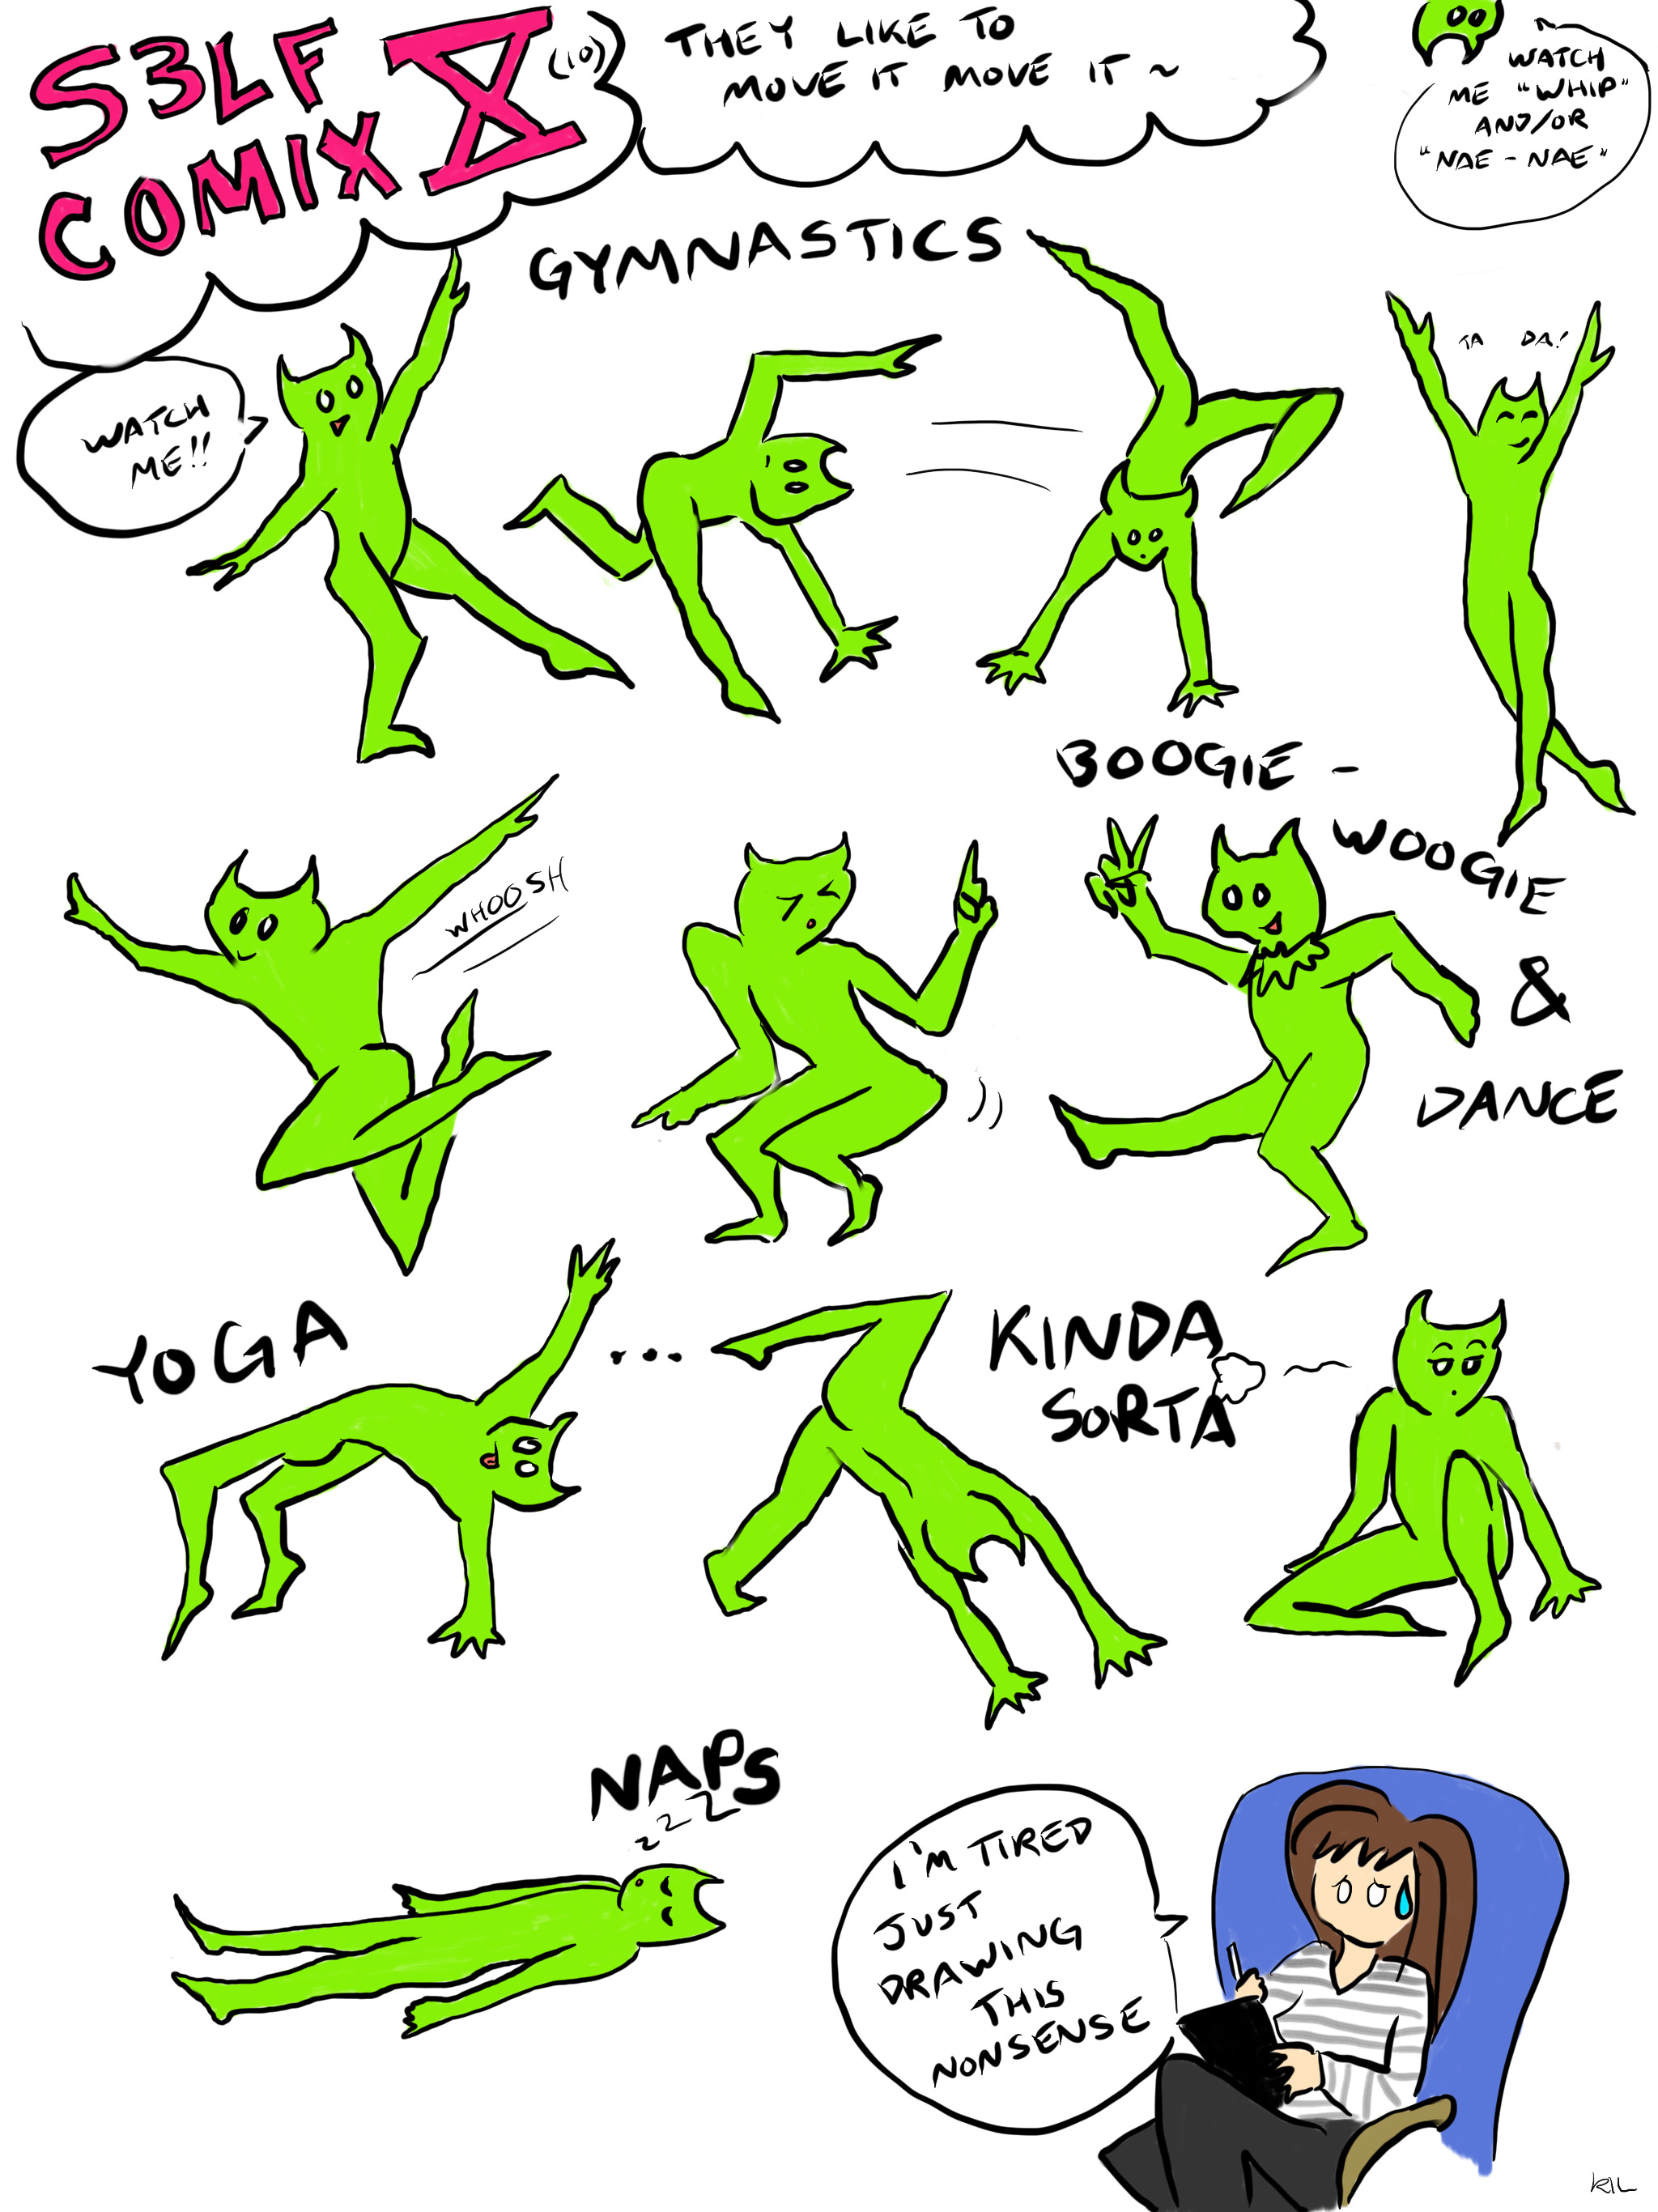 S3LF
COMIX X (10)
THEY LIKE TO
MOVE IT MOVE IT ~
~ WATCH
ME "WHIP"
AND/OR
"NAE-NAE"
GYMNASTICS
WATCH
ME!!
TA DA!
BOOGIE-
WOOGIE
&
DANCE
WHOOSH
YOGA ... KINDA
SORTA
NAPS
zzZ
I'M TIRED
JUST
DRAWING
THIS
NONSENSE